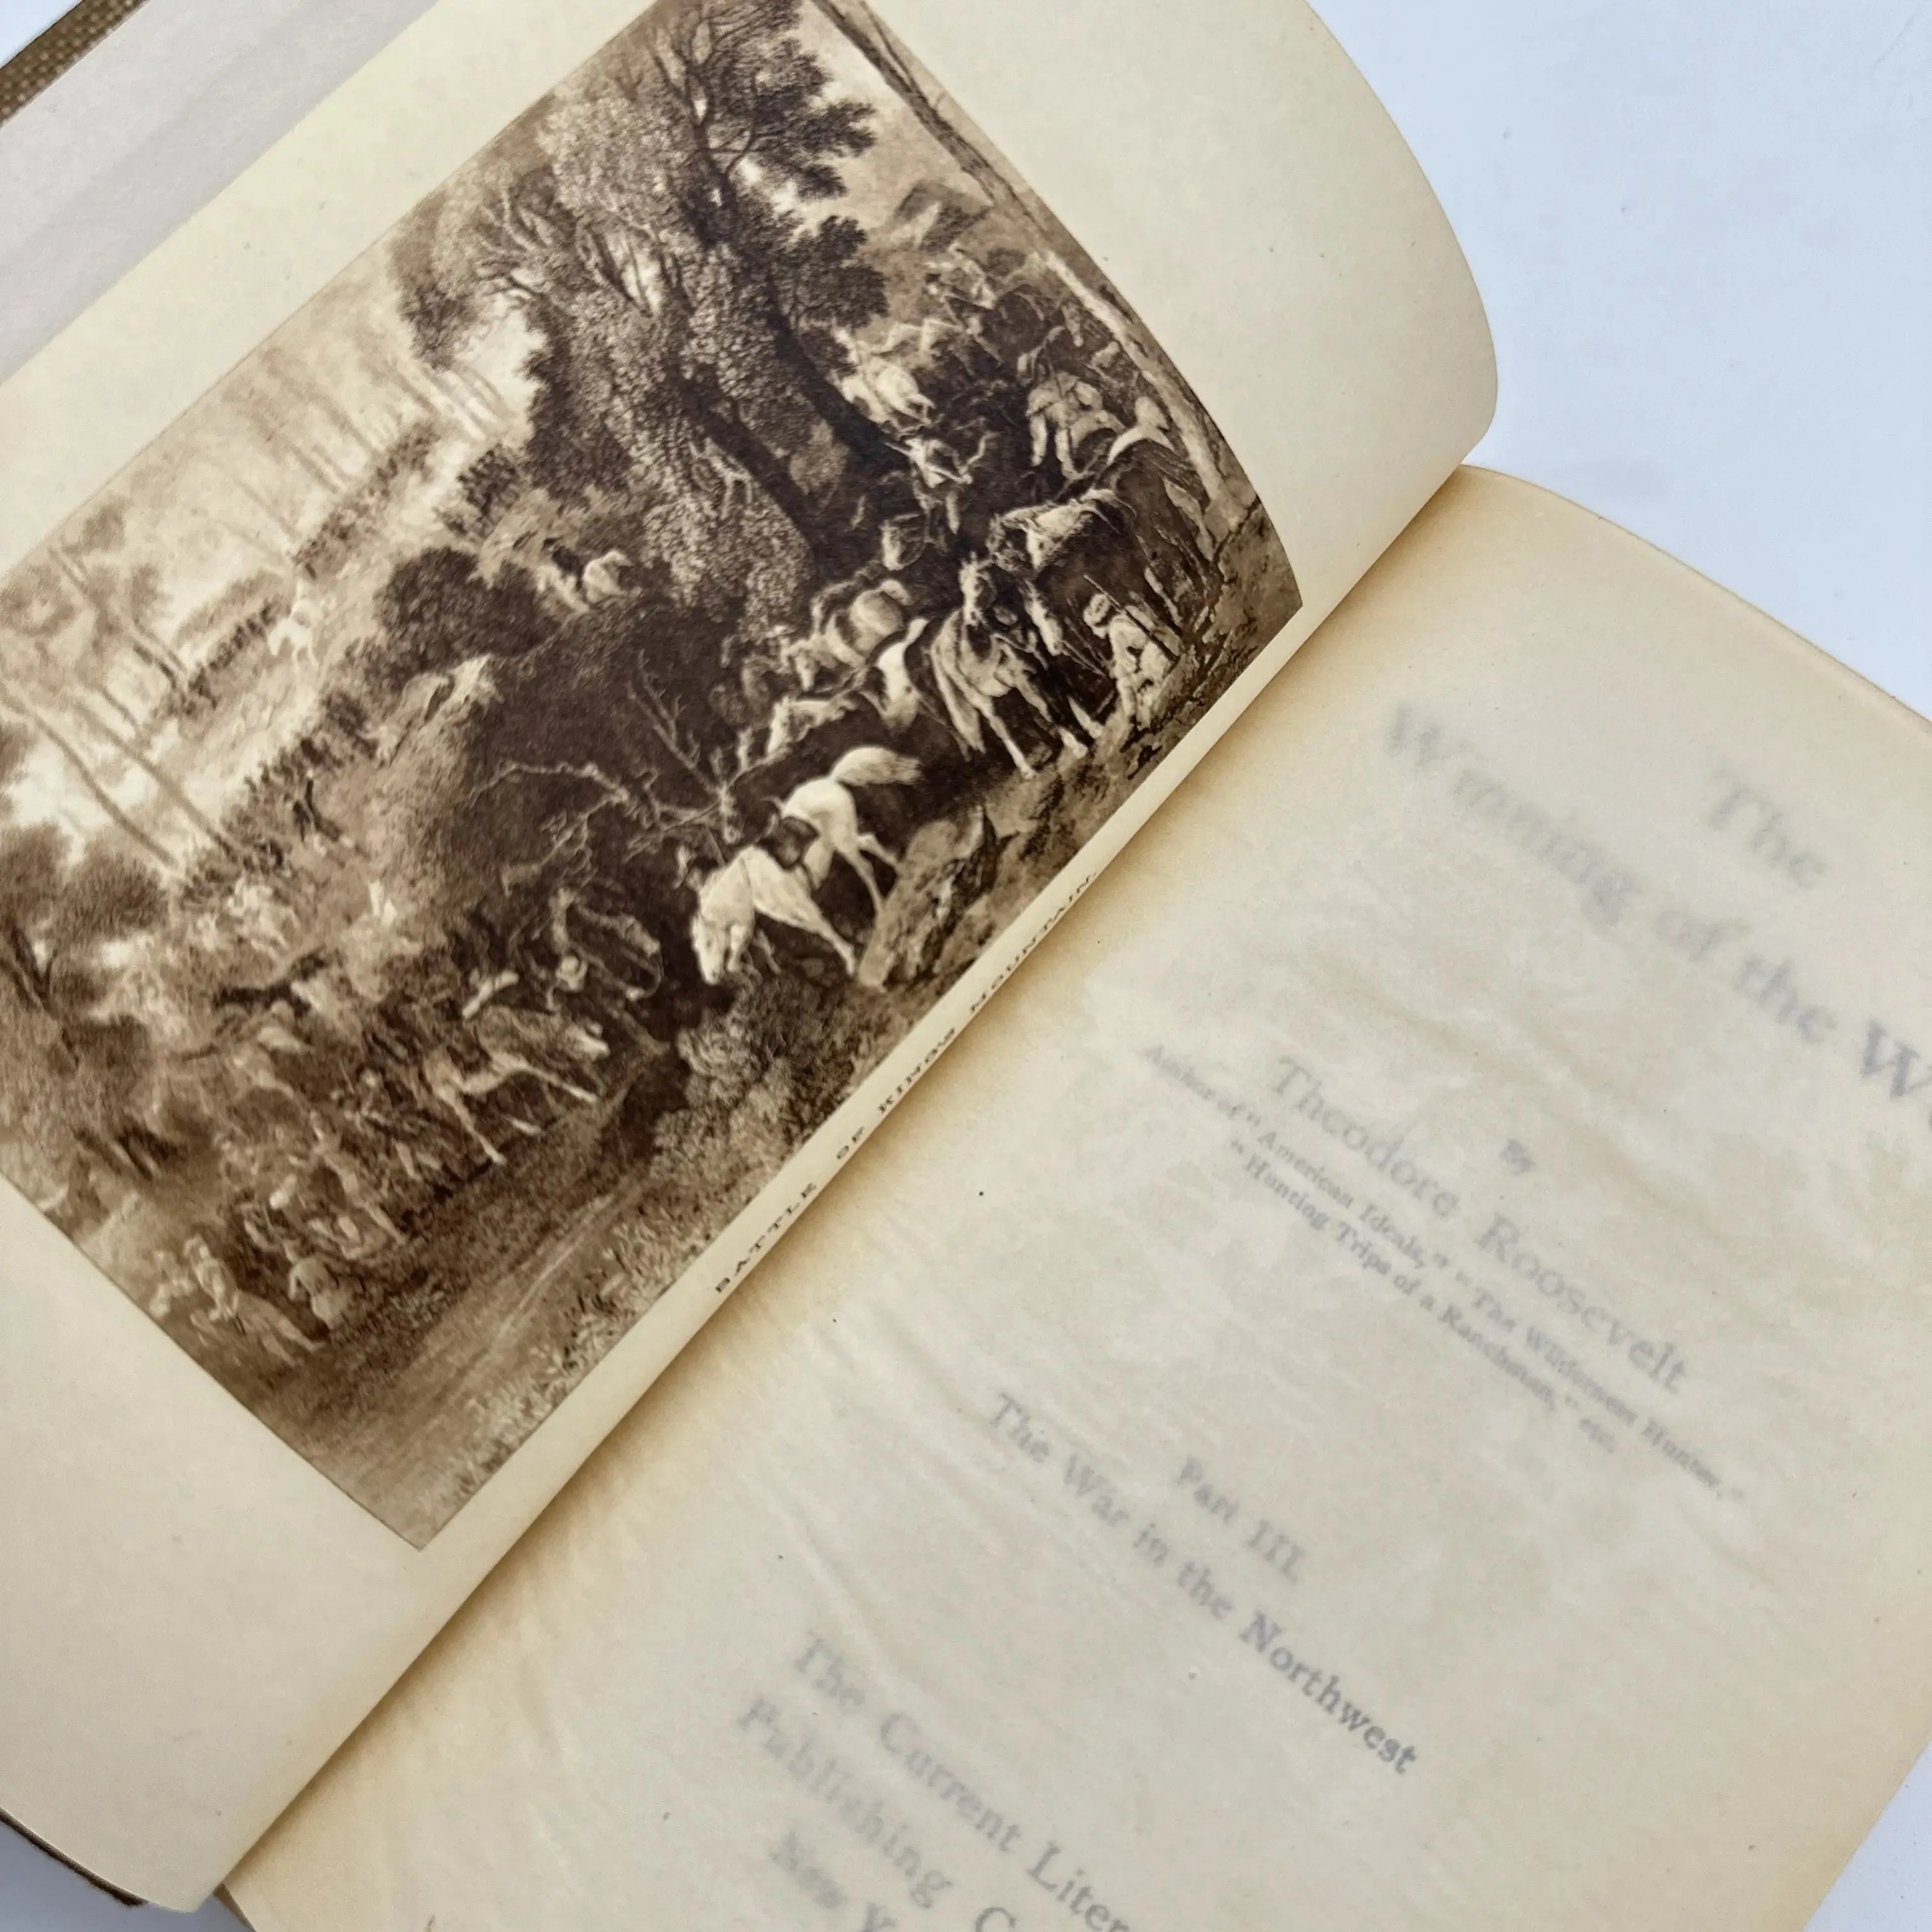 BATTLE OF KING'S MOUNTAIN.
The
Winning of the W
By
Theodore Roosevelt
Author of "American Ideals," "The Wilderness Hunter,"
"Hunting Trips of a Ranchman," etc.
Part III.
The War in the Northwest
The Current Liter
Publishing C
New Y